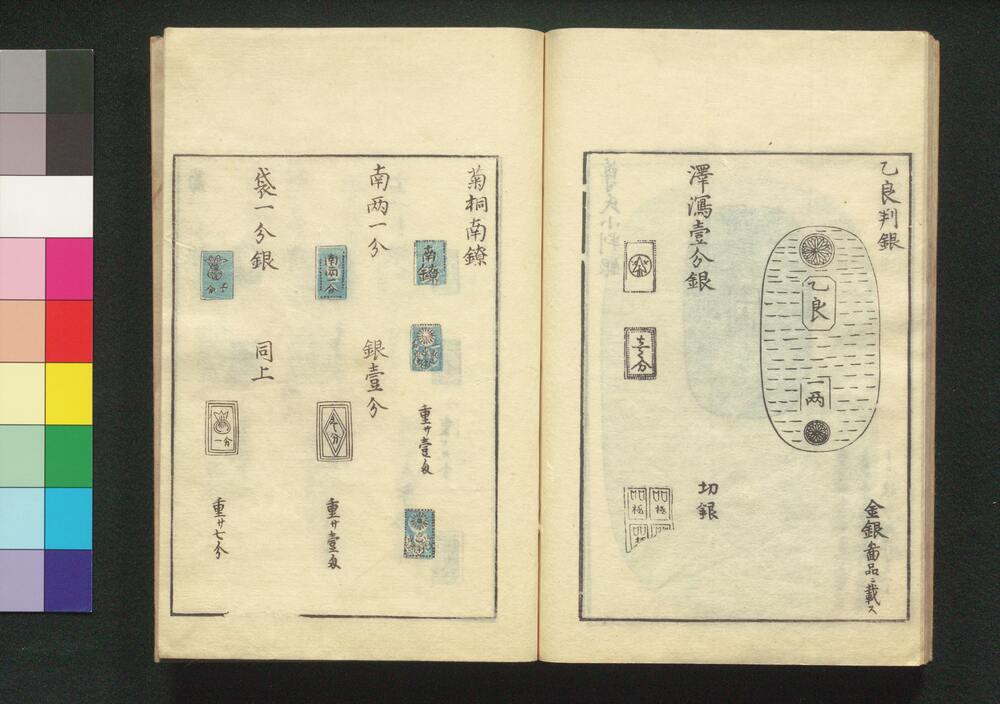 乙良判銀
乙良
一両
金銀啚品ニ載ス
澤瀉壹分銀
壹分
切銀
品極
品極
菊桐南鐐
南鐐
重サ壹匁
南两一分
南两一分
銀壹分
重サ壹匁
袋一分銀
同上
一分
重サ七分